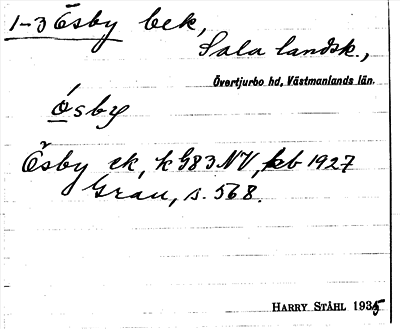 1-3 Ösby bek,
Sala landsk.,
Övertjurbo hd, Västmanlands län.
ósby
Ösby ek, k G83 NV, jb 1927
Grau, s. 568.
HARRY STÅHL 1935